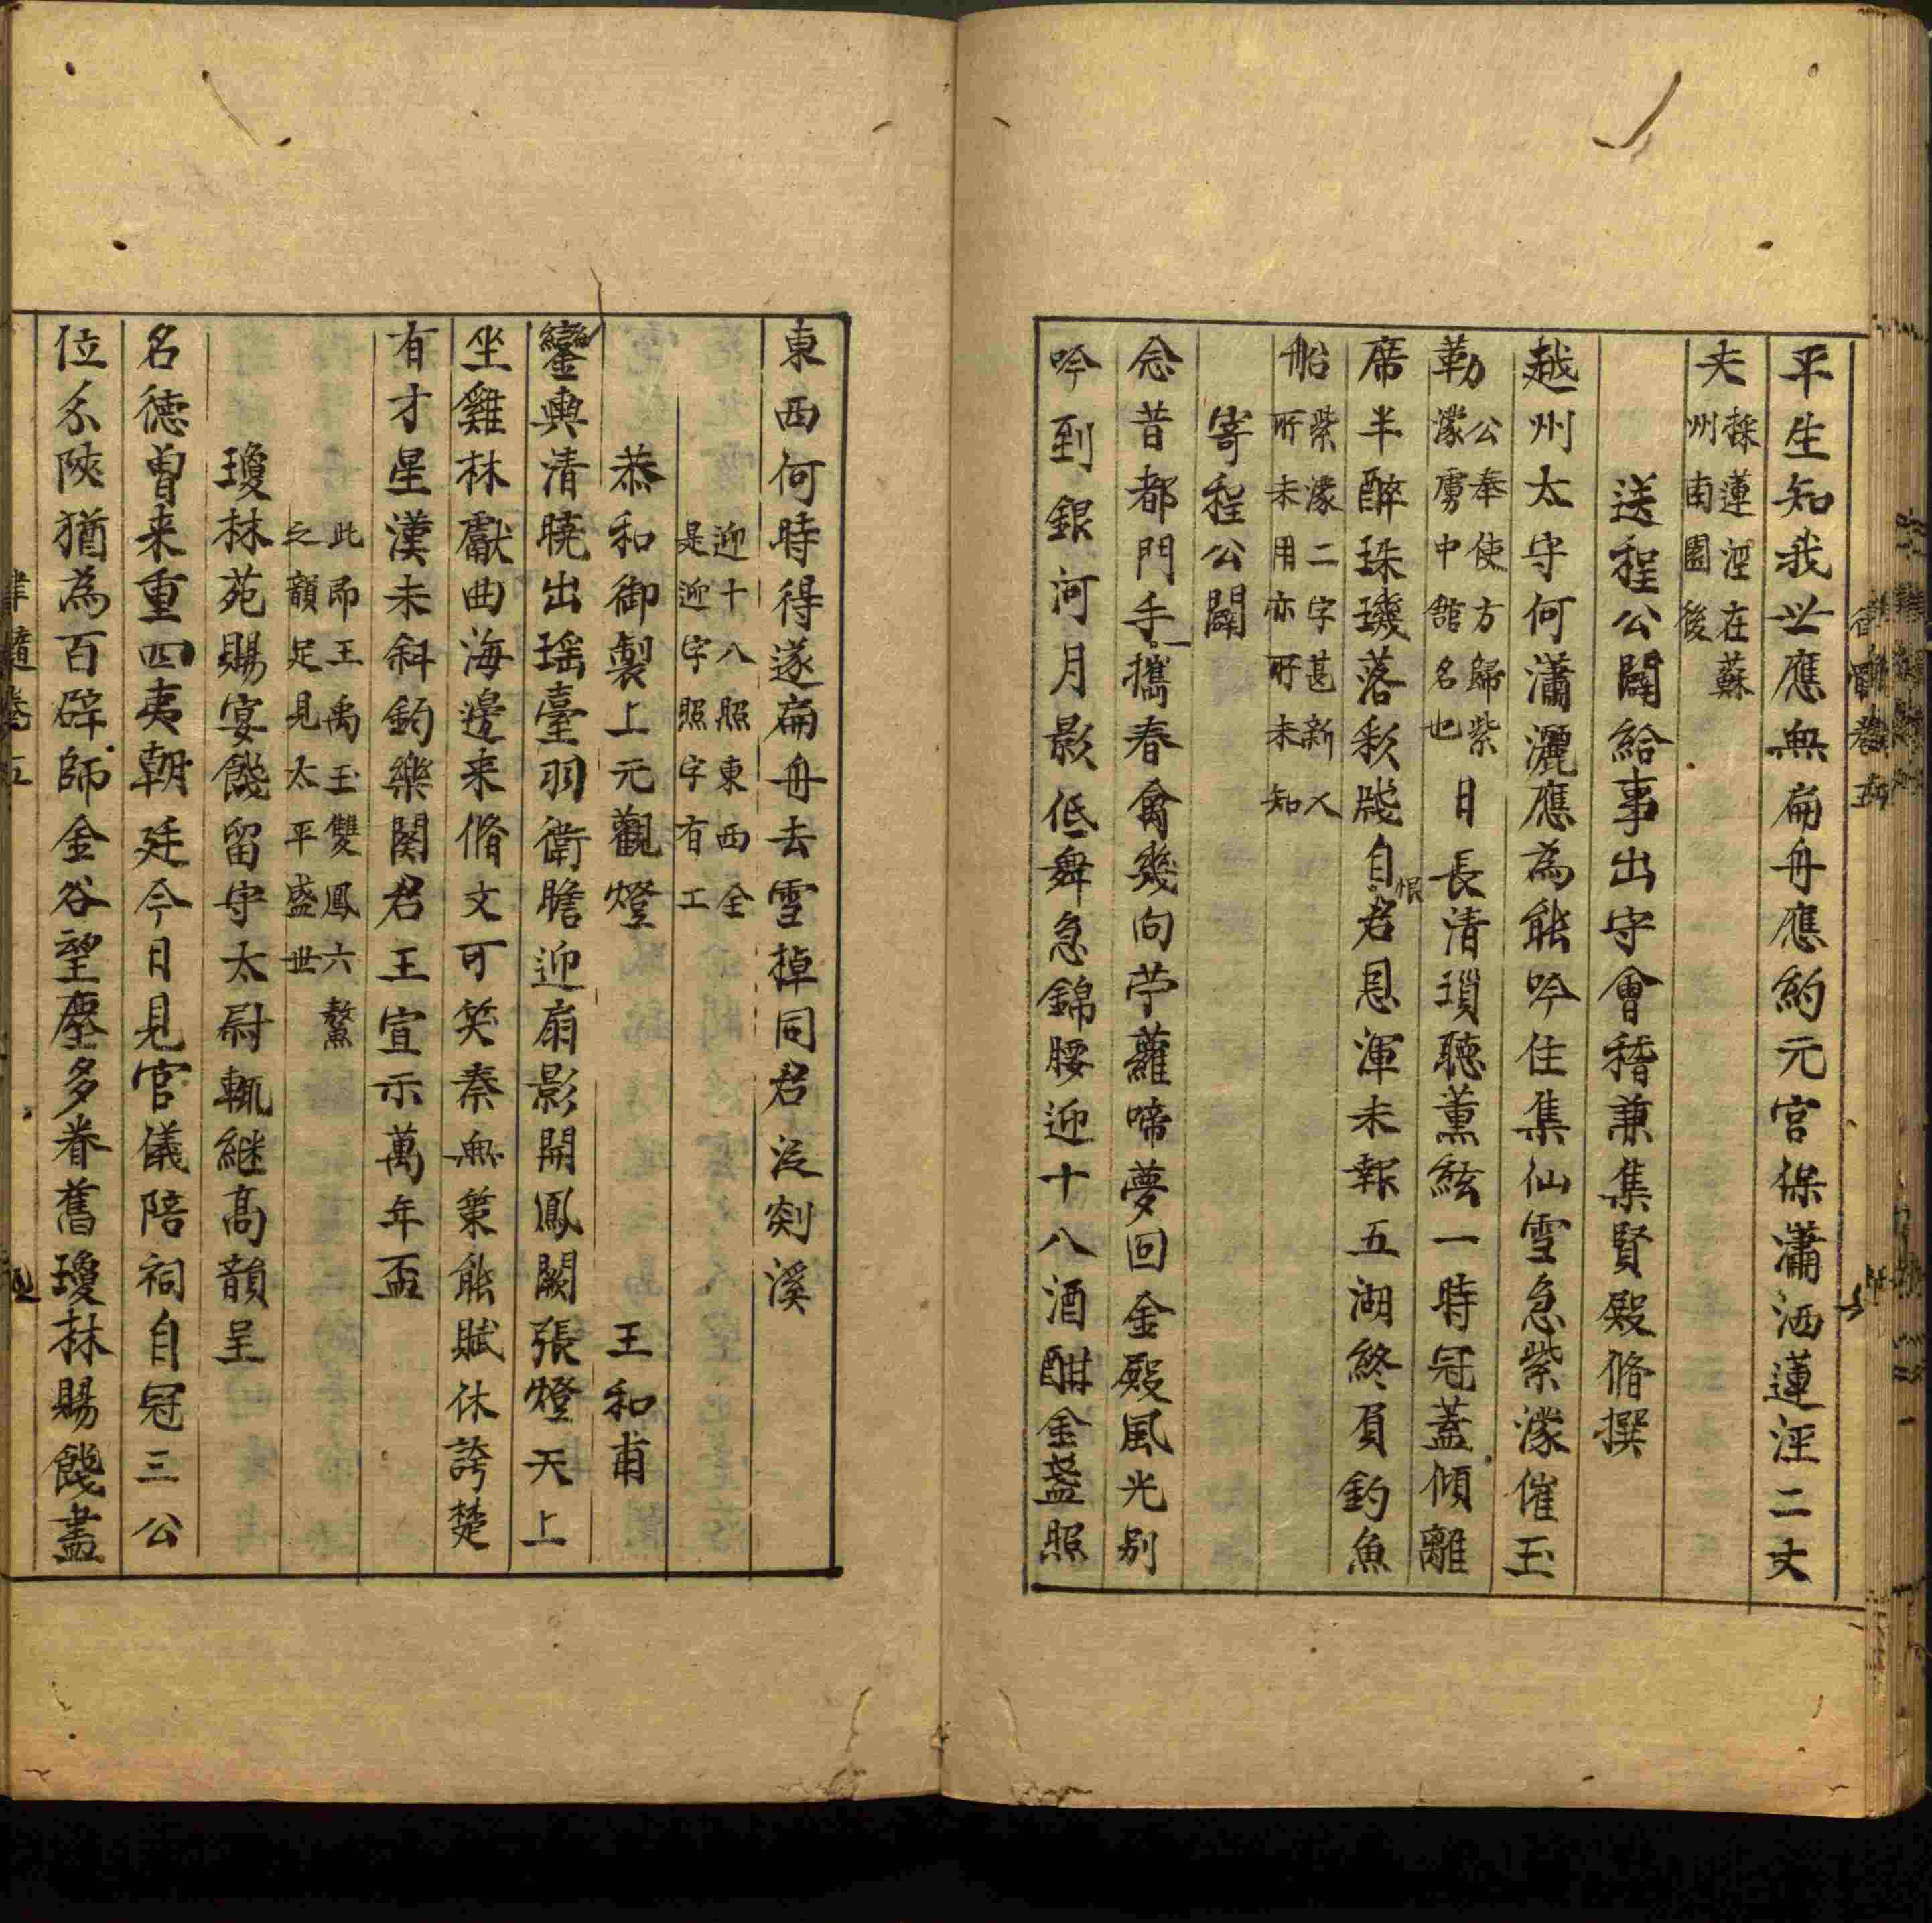 平生知我世應無扁舟應約元宮保瀟洒蓮涇二丈
夫採蓮涇在蘇州南園後
送程公闢給事出守會稽兼集賢殿脩撰
越州太守何瀟灑應為能吟住集仙雪急紫濛催玉
勒公奉使方歸紫濛虜中舘名也日長清瑣聴薰絃一時冠蓋傾離
席半醉珠璣落彩牋自君恩渾未報五湖終負釣魚
恨
船紫濛二字甚新人所未用亦所未知
寄程公闢
念昔都門手一攜春禽幾向苧蘿啼夢回金殿風光别
吟到銀河月影低舞急錦腰迎十八酒酣金盞照
東西何時得遂扁舟去雪棹同君泛剡溪
迎十八照東西全是迎字照字有工
恭和御製上元觀燈 王和甫
鑾輿清曉出瑶臺羽衛瞻迎扇影開鳳闕張燈天上
坐雞林獻曲海邊来脩文可笑秦無策能賦休誇楚
有才星漢未斜鈞樂闋君王宣示萬年盃
此即王禹玉雙鳳六鰲之韻足見太平盛世
瓊林苑賜宴餞留守太尉輒継高韻呈
名德曽来重四夷朝廷今日見官儀陪祠自冠三公
位分陝猶為百辟師金谷望塵多眷舊瓊林賜餞盡